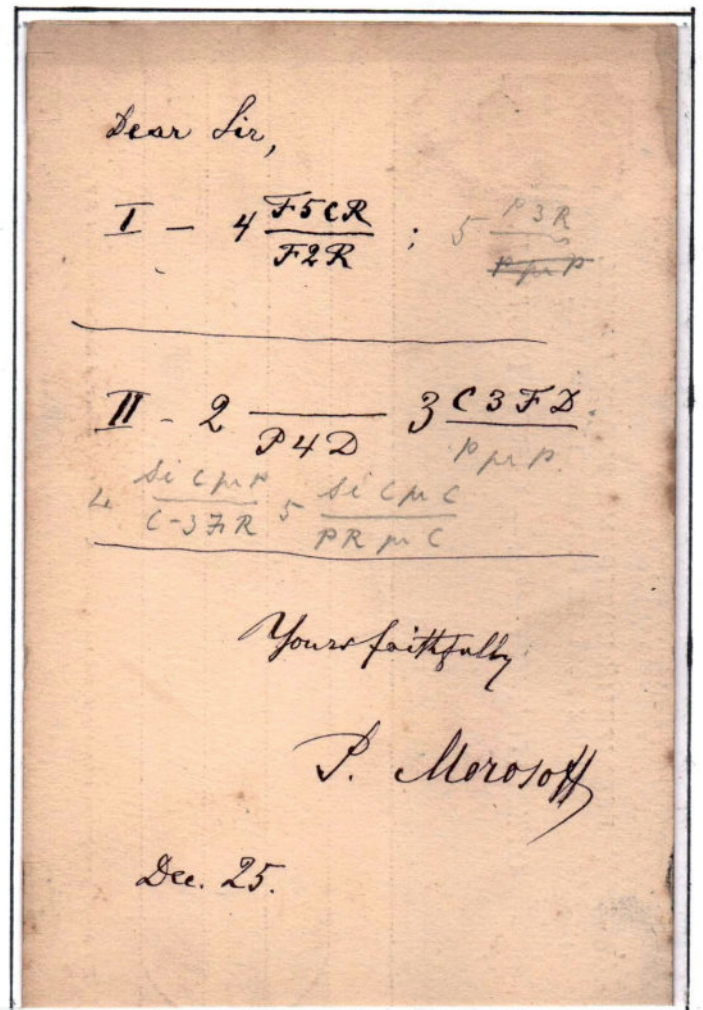 Dear Sir,
I - 4 F5CR / F2R ; 5 P3R / P pr P
II - 2 ____ / P4D 3 C3FD / P pr P.
4 Si C pr P / C-3FR 5 Si C pr C / PR pr C
Yours faithfully
P. Morosoff
Dec. 25.